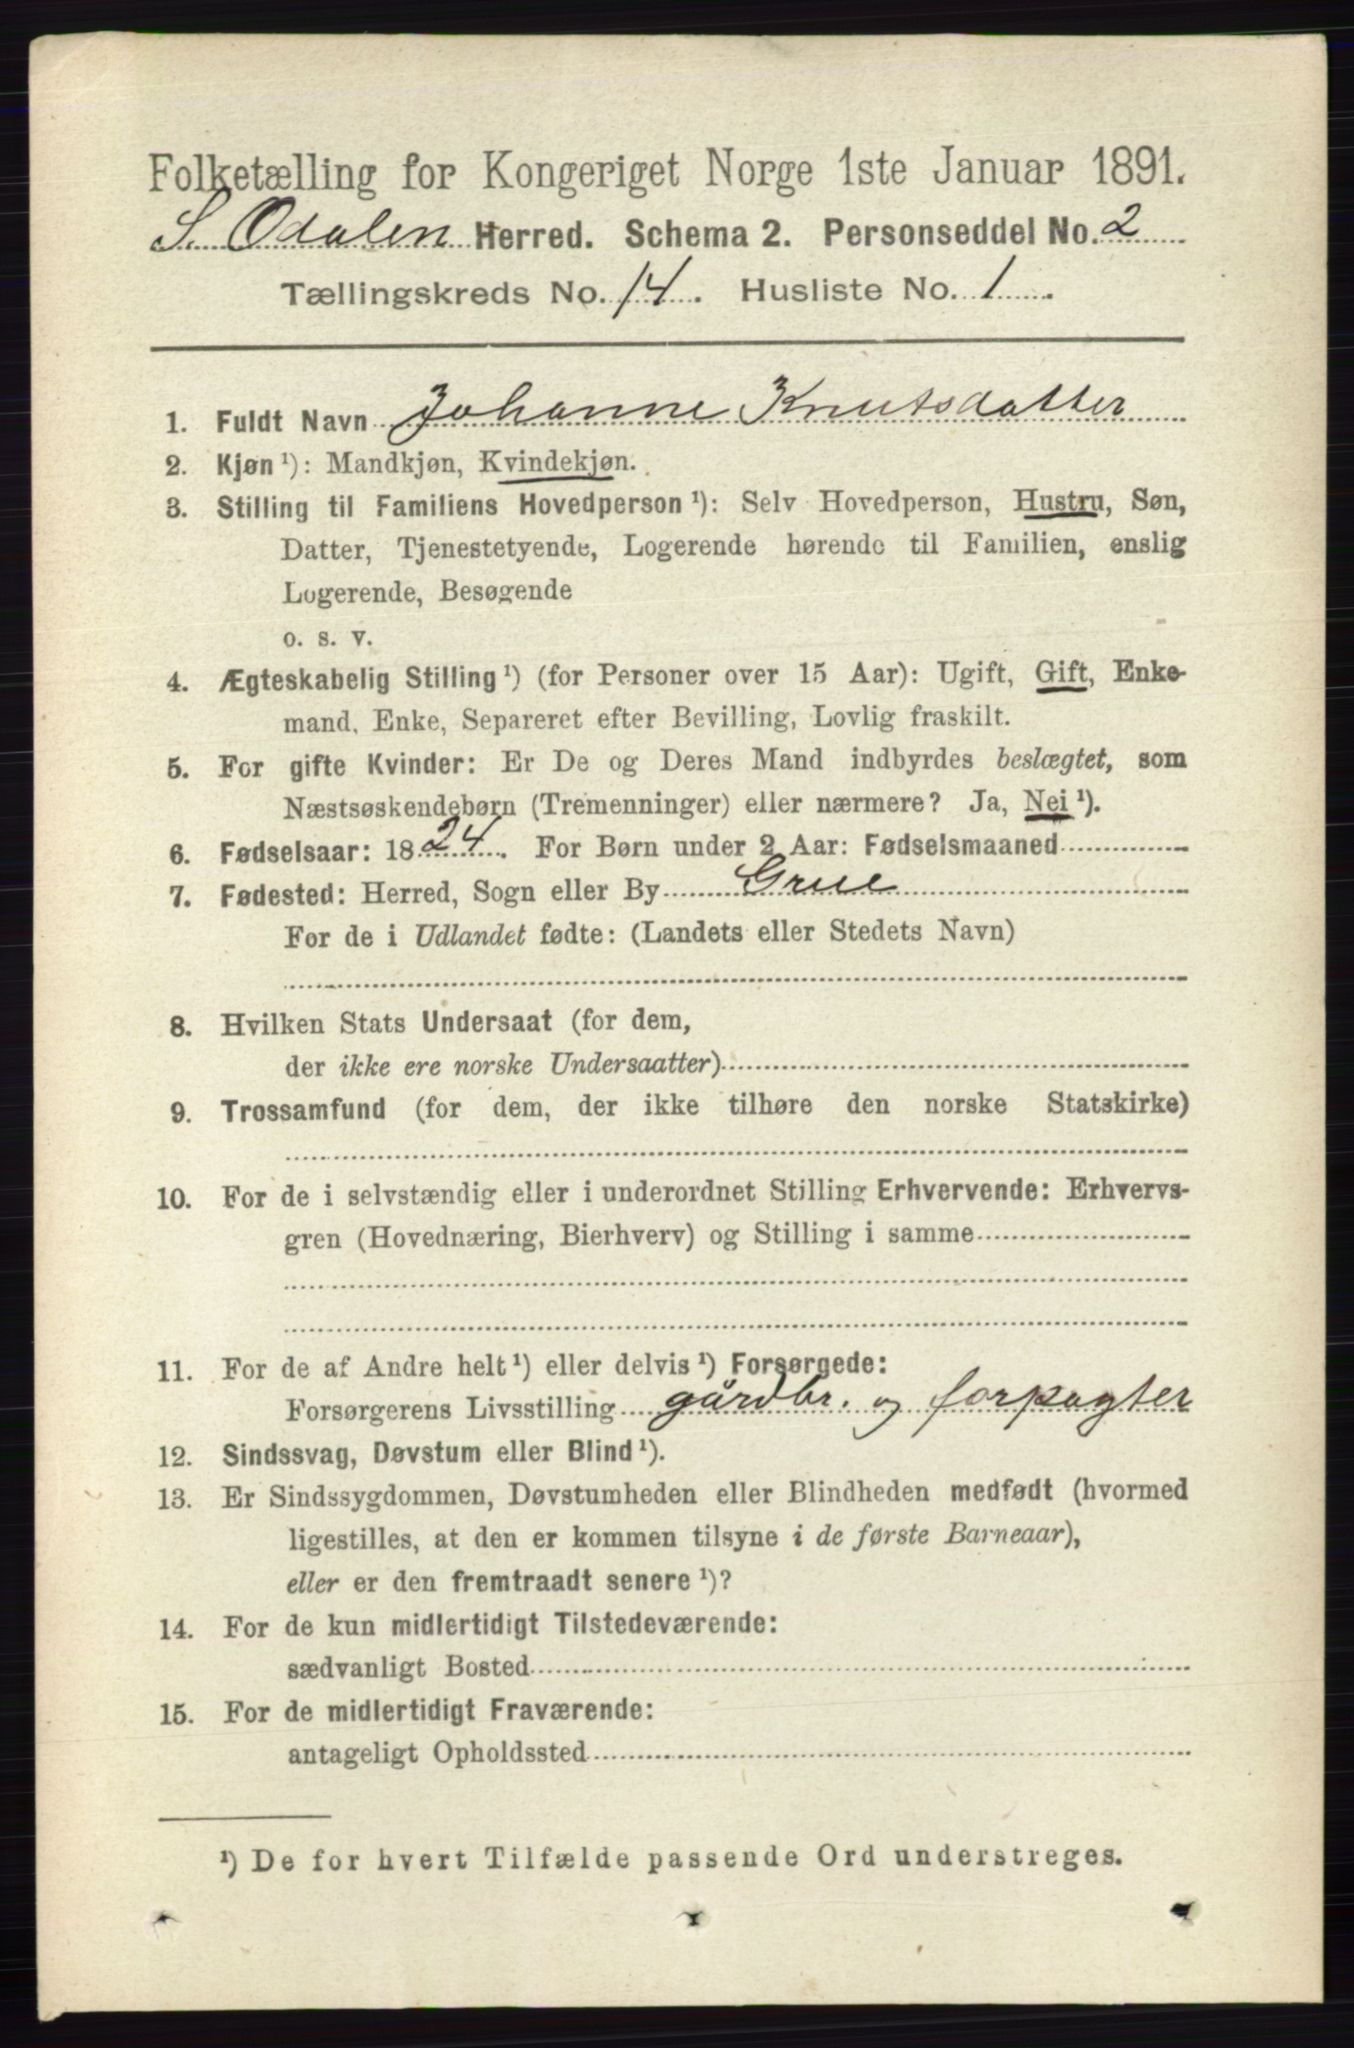 Folketælling for Kongeriget Norge 1ste Januar 1891.
S. Odalen Herred. Schema 2. Personseddel No. 2
Tællingskreds No. 14. Husliste No. 1.
1. Fuldt Navn Johanne Knutsdatter
2. Kjøn¹): Mandkjøn, Kvindekjøn.
3. Stilling til Familiens Hovedperson¹): Selv Hovedperson, Hustru, Søn,
Datter, Tjenestetyende, Logerende hørende til Familien, enslig
Logerende, Besøgende
o. s. v.
4. Ægteskabelig Stilling¹) (for Personer over 15 Aar): Ugift, Gift, Enke-
mand, Enke, Separeret efter Bevilling, Lovlig fraskilt.
5. For gifte Kvinder: Er De og Deres Mand indbyrdes beslægtet, som
Næstsøskendebørn (Tremenninger) eller nærmere? Ja, Nei¹).
6. Fødselsaar: 1824. For Børn under 2 Aar: Fødselsmaaned
7. Fødested: Herred, Sogn eller By Grue
For de i Udlandet fødte: (Landets eller Stedets Navn)
8. Hvilken Stats Undersaat (for dem,
der ikke ere norske Undersaatter)
9. Trossamfund (for dem, der ikke tilhøre den norske Statskirke)
10. For de i selvstændig eller i underordnet Stilling Erhvervende: Erhvervs-
gren (Hovednæring, Bierhverv) og Stilling i samme
11. For de af Andre helt¹) eller delvis¹) Forsørgede:
Forsørgerens Livsstilling gårdbr. og forpagter
12. Sindssvag, Døvstum eller Blind¹).
13. Er Sindssygdommen, Døvstumheden eller Blindheden medfødt (hvormed
ligestilles, at den er kommen tilsyne i de første Barneaar),
eller er den fremtraadt senere¹)?
14. For de kun midlertidigt Tilstedeværende:
sædvanligt Bosted
15. For de midlertidigt Fraværende:
antageligt Opholdssted
¹) De for hvert Tilfælde passende Ord understreges.